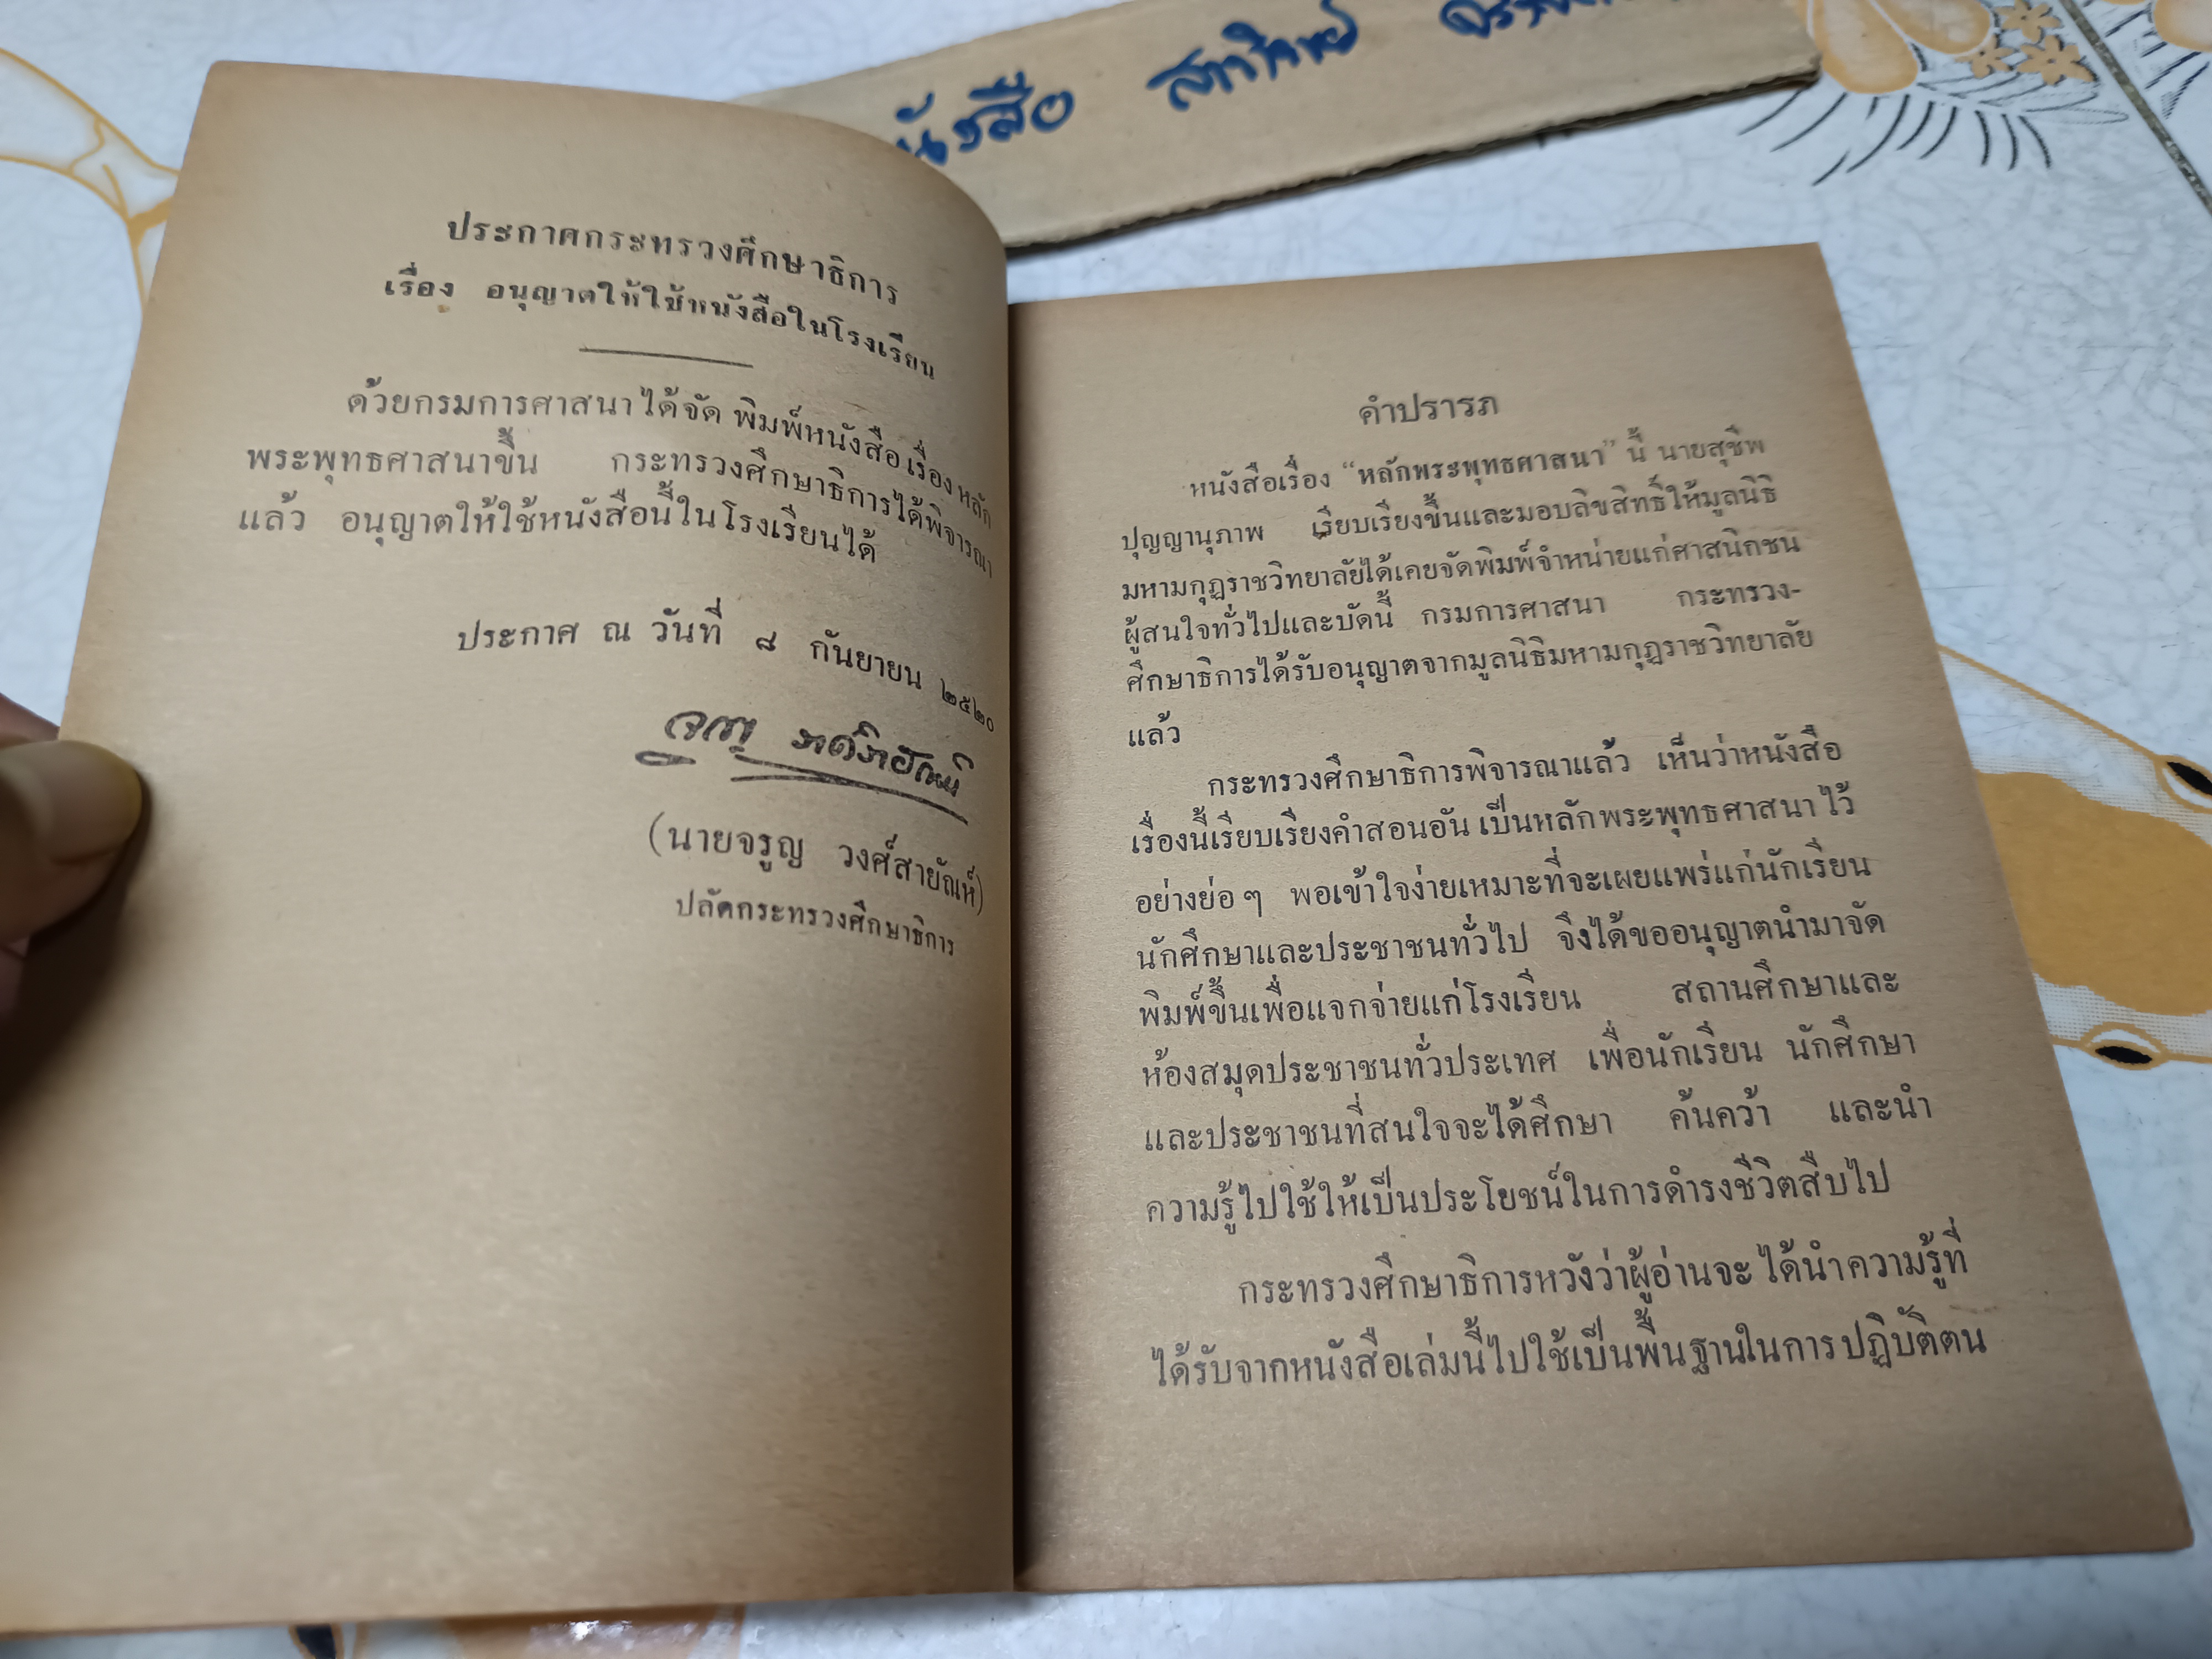 นังสือ สภาวิทย์
ประกาศกระทรวงศึกษาธิการ
เรื่อง อนุญาตให้ใช้หนังสือในโรงเรียน
ด้วยกรมการศาสนาได้จัดพิมพ์หนังสือ เรื่อง หลัก
พระพุทธศาสนาขึ้น กระทรวงศึกษาธิการได้พิจารณา
แล้ว อนุญาตให้ใช้หนังสือนี้ในโรงเรียนได้
ประกาศ ณ วันที่ ๘ กันยายน ๒๕๒๐
(นายจรูญ วงศ์สายัณห์)
ปลัดกระทรวงศึกษาธิการ
คำปรารภ
หนังสือเรื่อง “หลักพระพุทธศาสนา” นี้ นายสุชีพ
ปุญญานุภาพ เรียบเรียงขึ้นและมอบลิขสิทธิ์ให้มูลนิธิ
มหามกุฏราชวิทยาลัยได้เคยจัดพิมพ์จำหน่ายแก่ศาสนิกชน
ผู้สนใจทั่วไปและบัดนี้ กรมการศาสนา กระทรวง-
ศึกษาธิการได้รับอนุญาตจากมูลนิธิมหามกุฏราชวิทยาลัย
แล้ว
กระทรวงศึกษาธิการพิจารณาแล้ว เห็นว่าหนังสือ
เรื่องนี้เรียบเรียงคำสอนอัน เป็นหลักพระพุทธศาสนาไว้
อย่างย่อ ๆ พอเข้าใจง่ายเหมาะที่จะเผยแพร่แก่นักเรียน
นักศึกษาและประชาชนทั่วไป จึงได้ขออนุญาตนำมาจัด
พิมพ์ขึ้นเพื่อแจกจ่ายแก่โรงเรียน สถานศึกษาและ
ห้องสมุดประชาชนทั่วประเทศ เพื่อนักเรียน นักศึกษา
และประชาชนที่สนใจจะได้ศึกษา ค้นคว้า และนำ
ความรู้ไปใช้ให้เป็นประโยชน์ในการดำรงชีวิตสืบไป
กระทรวงศึกษาธิการหวังว่าผู้อ่านจะได้นำความรู้ที่
ได้รับจากหนังสือเล่มนี้ไปใช้เป็นพื้นฐานในการปฏิบัติตน